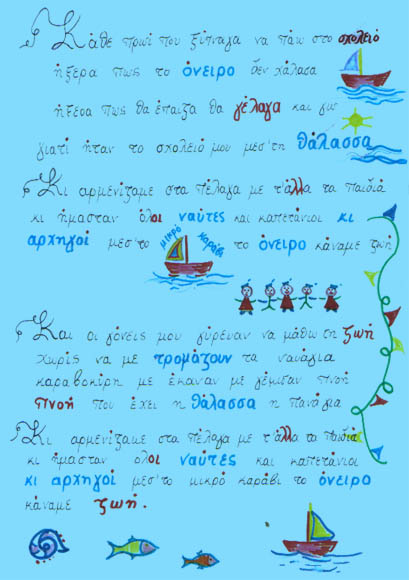 Κάθε πρωί που ξύπναγα να πάω στο σχολειό
ήξερα πως το όνειρο δεν χάλασα
ήξερα πως θα έπαιζα θα γέλαγα και
γιατί ήταν το σχολειό μου μεσ'τη θάλασσα
Κι αρμενίζαμε στα πέλαγα με τ'άλλα τα παιδιά
κι ήμασταν όλοι ναύτες και καπετάνιοι κι
αρχηγοί μεσ'το μικρό καράβι το όνειρο κάναμε ζωή
Και οι γονείς μου γύρευαν να μάθω τη ζωή
χωρίς να με τρομάζουν τα ναυάγια
καραβοκύρη με έκαναν με γέμισαν πνοή
πνοή που έχει η θάλασσα η πανάγια
Κι αρμενίζαμε στα πέλαγα με τ'άλλα τα παιδιά
κι ήμασταν όλοι ναύτες και καπετάνιοι
κι αρχηγοί μεσ'το μικρό καράβι το όνειρο
κάναμε ζωή.